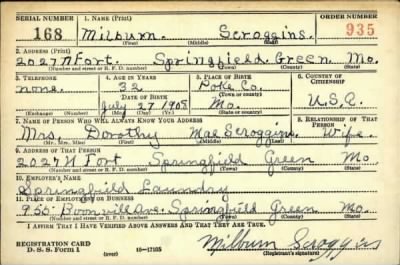 SERIAL NUMBER 1. NAME (Print) ORDER NUMBER
168 Milburn Scroggins 935
(First) (Middle) (Last)
2. ADDRESS (Print)
2027 N Fort. Springfield Green Mo.
(Number and street or R. F. D. number) (Town) (County) (State)
3. TELEPHONE 4. AGE IN YEARS 5. PLACE OF BIRTH 6. COUNTRY OF CITIZENSHIP
none. 32 Polk Co.
DATE OF BIRTH
July 27 1908 Mo. U.S.A.
(Exchange) (Number) (Mo.) (Day) (Yr.) (State or country)
7. NAME OF PERSON WHO WILL ALWAYS KNOW YOUR ADDRESS 8. RELATIONSHIP OF THAT PERSON
Mrs. Dorothy Mae Scroggins. Wife.
(Mr., Mrs., Miss) (First) (Middle) (Last)
9. ADDRESS OF THAT PERSON
2027 N Fort Springfield Green Mo
(Number and street or R. F. D. number) (Town) (County) (State)
10. EMPLOYER'S NAME
Springfield Laundry
11. PLACE OF EMPLOYMENT OR BUSINESS
955 Boonvill Ave. Springfield Green Mo.
(Number and street or R. F. D. number) (Town) (County) (State)
I AFFIRM THAT I HAVE VERIFIED ABOVE ANSWERS AND THAT THEY ARE TRUE.
REGISTRATION CARD
D. S. S. Form 1 (over) 16-17105 Milburn Scroggins
(Registrant's signature)